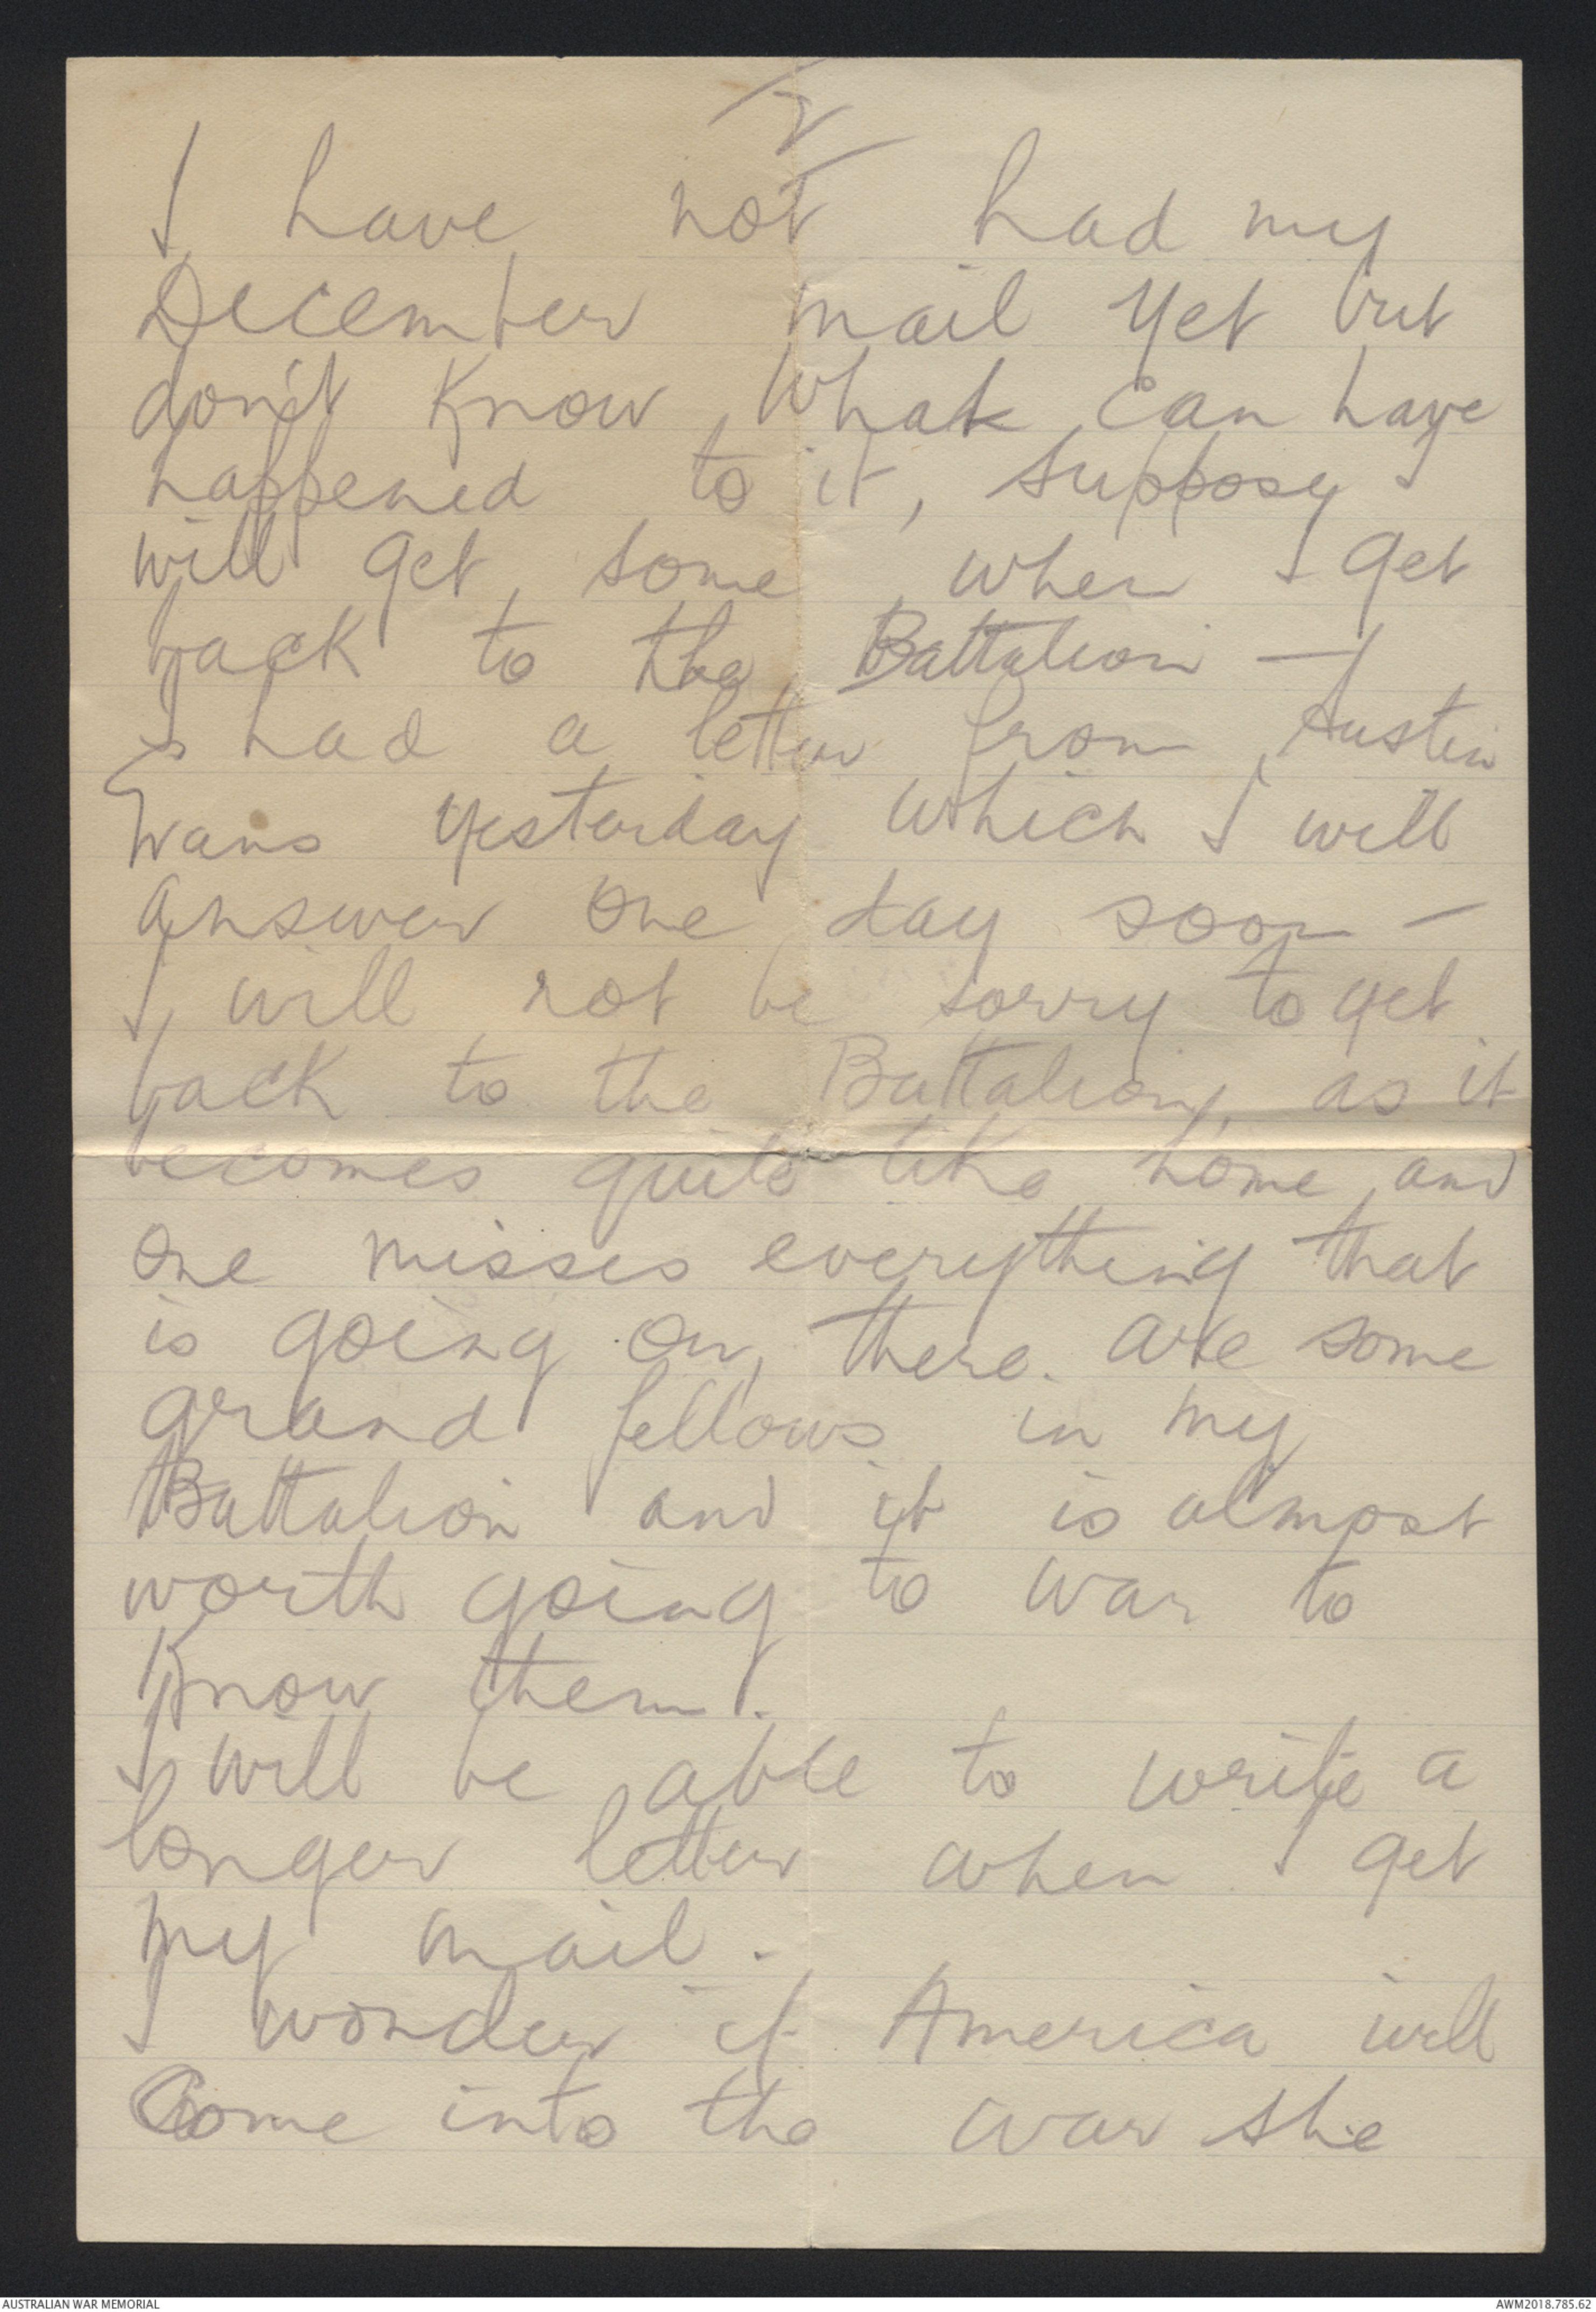 2
I have not had my
December mail yet but
don't know what can have
happened to it, suppose I
will get some when I get
back to the Battalion —
I had a letter from Austin
Evans yesterday which I will
answer one day soon —
I will not be sorry to get
back to the Battalion, as it
becomes quite like home and
one misses everything that
is going on, there are some
grand fellows in my
Battalion and it is almost
worth going to war to
know them.
I will be able to write a
longer letter when I get
my mail -
I wonder if America will
Come into the war she
AUSTRALIAN WAR MEMORIAL
AWM2018.785.62